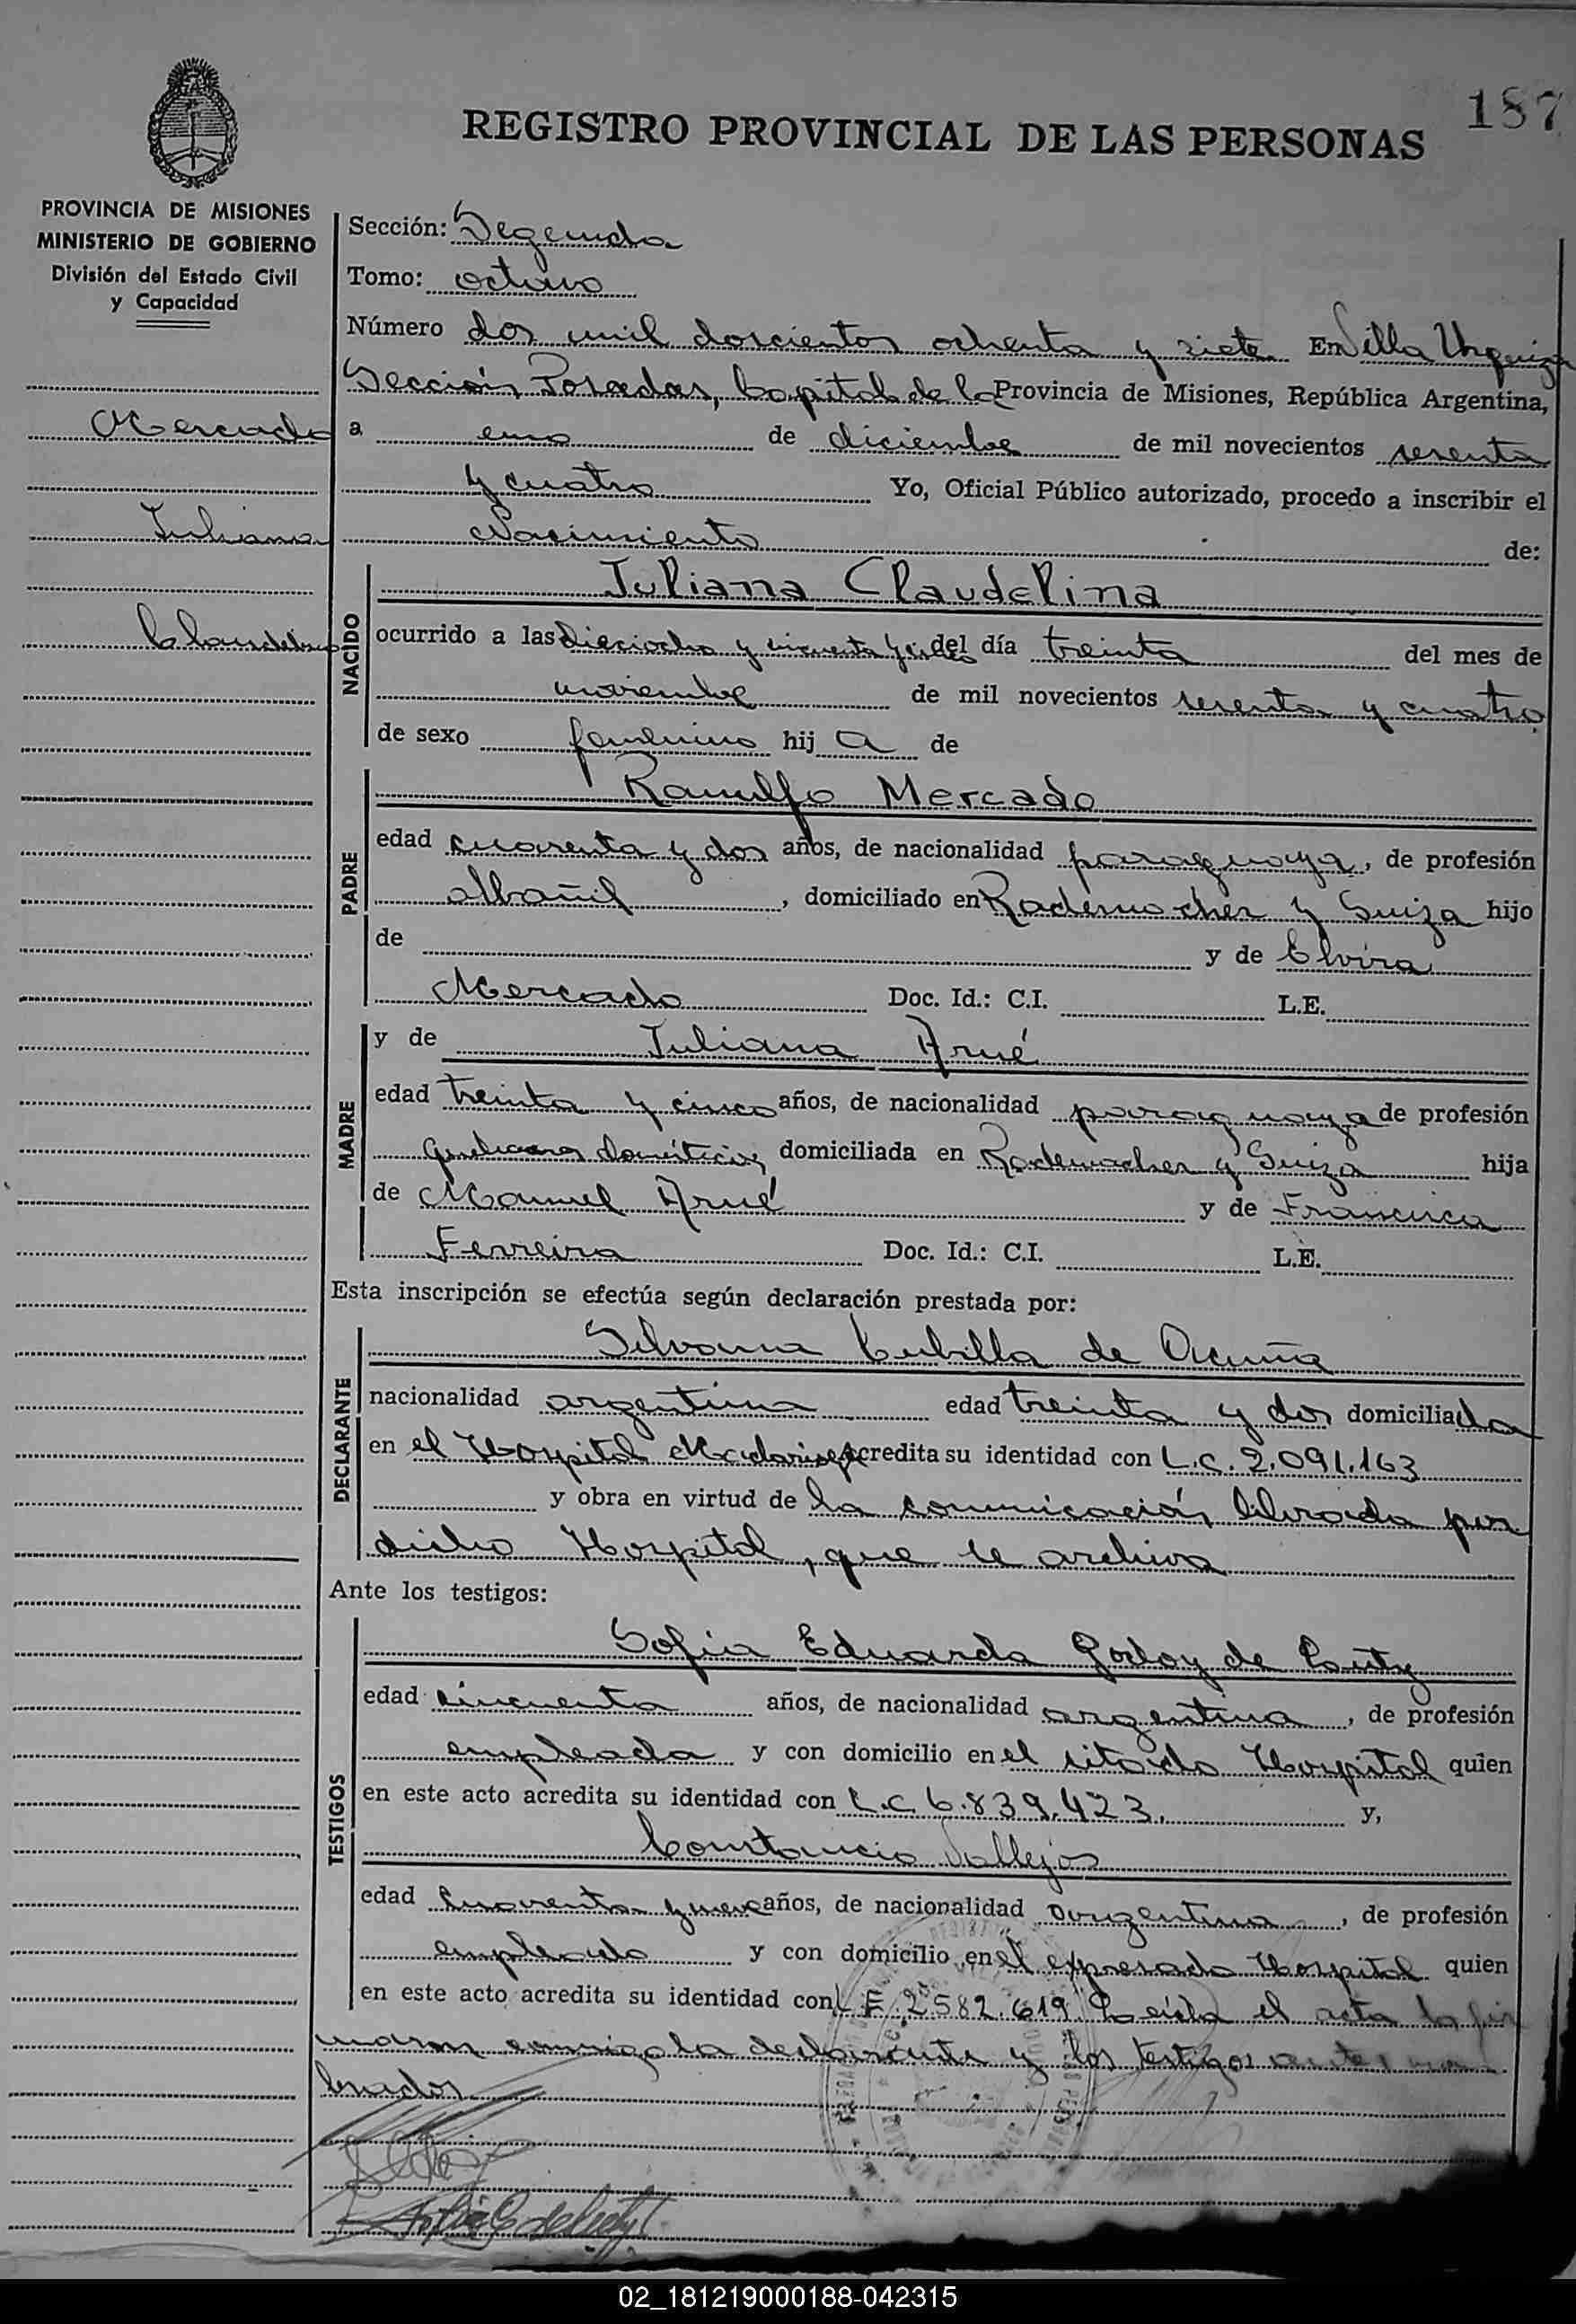 187
REGISTRO PROVINCIAL DE LAS PERSONAS
PROVINCIA DE MISIONES
MINISTERIO DE GOBIERNO
División del Estado Civil
y Capacidad
Mercado
Juliana
Claudelina
Sección: Segunda
Tomo: octavo
Número dos mil doscientos ochenta y siete En Villa Urquiza
Sección Posadas, Capital de la Provincia de Misiones, República Argentina,
a uno de diciembre de mil novecientos sesenta
y cuatro Yo, Oficial Público autorizado, procedo a inscribir el
Nacimiento de:
NACIDO
Juliana Claudelina
ocurrido a las dieciocho y cincuenta y del día treinta del mes de
noviembre de mil novecientos sesenta y cuatro
de sexo femenino hija de
PADRE
Ranulfo Mercado
edad cuarenta y dos años, de nacionalidad paraguaya, de profesión
albañil, domiciliado en Rademacher y Suiza hijo
de y de Elvira
Mercado Doc. Id.: C.I. L.E.
MADRE
y de Juliana Arué
edad treinta y cinco años, de nacionalidad paraguaya de profesión
quehaceres domésticos, domiciliada en Rademacher y Suiza hija
de Manuel Arué y de Francisca
Ferreira Doc. Id.: C.I. L.E.
Esta inscripción se efectúa según declaración prestada por:
DECLARANTE
Silvana Cubilla de Acuña
nacionalidad argentina edad treinta y dos domiciliada
en el Hospital Madariaga acredita su identidad con L.C. 2.091.163
y obra en virtud de la comunicación librada por
dicho Hospital, que se archiva
Ante los testigos:
TESTIGOS
Sofia Eduarda Godoy de
edad cincuenta años, de nacionalidad argentina, de profesión
empleada y con domicilio en el citado Hospital quien
en este acto acredita su identidad con L.C. 6.839.423. y,
Constancio Vallejos
edad cuarenta y nueve años, de nacionalidad argentina, de profesión
empleado y con domicilio en el expresado Hospital quien
en este acto acredita su identidad con L.E. 2582.619. Leída el acta la fir
maron conmigo la declarante y los testigos antes nom
brados
02_181219000188-042315